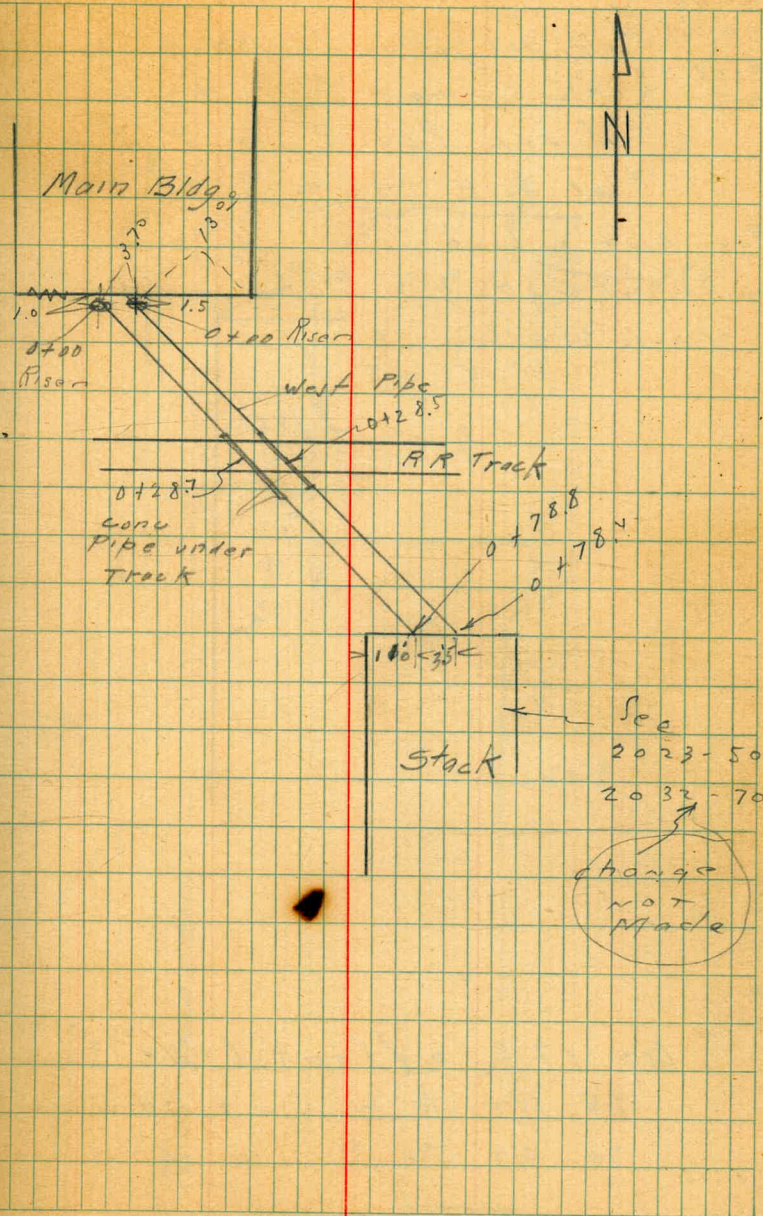 N
Main Bldg.
3.70
1.0
1.5
0+00
Riser
0+00 Riser
West Pipe
0+28.5
R R Track
0+28.7
conc
Pipe under
Track
0+78.8
0+78.4
3.5
Stack
See
2023-50
2032-70
change
not
Made